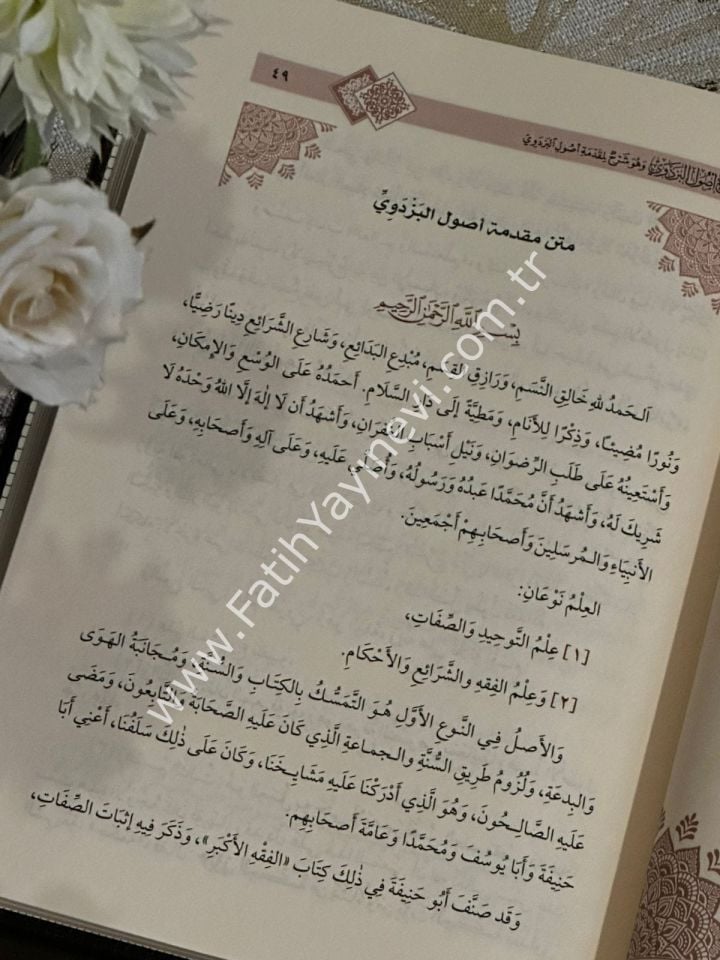 ٤٩
أصول البزدوي وهو شرح لمقدمة أصول البزدوي
متن مقدمة أصول البَزْدَوِيِّ
بِسْمِ اللَّهِ الرَّحْمَٰنِ الرَّحِيمِ
الحَمدُ للهِ خَالِقِ النَّسَمِ، وَرَازِقِ القِسَمِ، مُبْدِعِ البَدَائِعِ، وَشَارِعِ الشَّرَائِعِ دِينًا رَضِيًّا،
وَنُورًا مُضِيئًا، وَذِكْرًا لِلأَنَامِ، وَمَطِيَّةً إِلَى دَارِ السَّلَامِ. أَحمَدُهُ عَلَى الوُسْعِ وَالإِمكَانِ،
وَأَسْتَعِينُهُ عَلَى طَلَبِ الرِّضوَانِ، وَنَيْلِ أَسْبَابِ الغُفرَانِ، وَأَشهَدُ أَن لَا إِلٰهَ إِلَّا اللهُ وَحْدَهُ لَا
شَرِيكَ لَهُ، وَأَشهَدُ أَنَّ مُحَمَّدًا عَبدُهُ وَرَسُولُهُ، وَأُصَلِّي عَلَيهِ، وَعَلَى آلِهِ وَأَصحَابِهِ، وَعَلَى
الأَنبِيَاءِ وَالمُرسَلِينَ وَأَصحَابِهِمْ أَجْمَعِينَ.
العِلْمُ نَوْعَانِ:
[١] عِلْمُ التَّوحِيدِ وَالصِّفَاتِ،
[٢] وَعِلْمُ الفِقهِ والشَّرَائِعِ وَالأَحْكَامِ.
وَالأَصلُ فِي النَّوعِ الأَوَّلِ هُوَ التَّمَسُّكُ بِالكِتَابِ وَالسُّنَّةِ، وَمُجَانَبَةُ الهَوَى
وَالبِدعَةِ، وَلُزُومُ طَرِيقِ السُّنَّةِ والجماعةِ الَّذِي كَانَ عَلَيهِ الصَّحَابَةُ وَالتَّابِعُونَ، وَمَضَى
عَلَيهِ الصَّالِحُونَ، وَهُوَ الَّذِي أَدْرَكْنَا عَلَيهِ مَشَايِخَنَا، وَكَانَ عَلَى ذٰلِكَ سَلَفُنَا، أَعْنِي أَبَا
حَنِيفَةَ وَأَبَا يُوسُفَ وَمُحَمَّدًا وَعَامَّةَ أَصحَابِهِم.
وَقَد صَنَّفَ أَبُو حَنِيفَةَ فِي ذٰلِكَ كِتَابَ «الفِقْهِ الأَكْبَرِ»، وَذَكَرَ فِيهِ إِثبَاتَ الصِّفَاتِ،
www.FatihYayinevi.com.tr